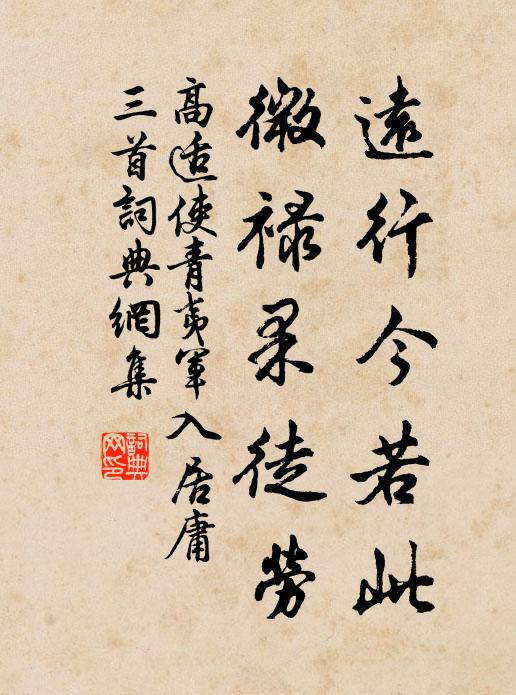 遠行今若此
微祿果徒勞
高适使青夷軍入居庸
三首詞典網集
詞典網印